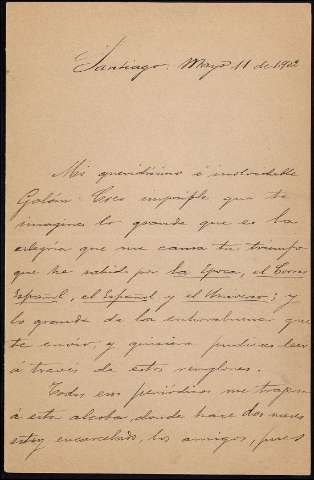 Santiago: Mayo 11 de 1902
Mi queridísimo é inolvidable
Galán: Creo imposible que te
imagines lo grande que es la
alegría que me causa tu triunfo
que he sabido por la Época, el Correo
Español, el Español y el Universo; y
lo grande de la enhorabuena que
te envío; y quisiera pudieses leer
á través de estos renglones.
Todos esos periódicos me trajeron
á esta alcoba, donde hace dos meses
estoy encarcelado, los amigos, pues